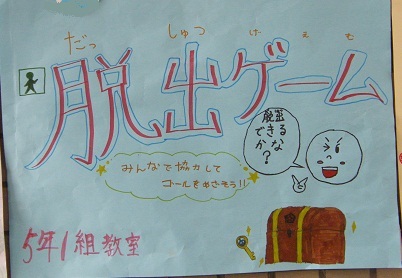 だっ しゅつ げ え む
脱出ゲーム
脱出
できるな
か?
みんなで協力して
ゴールをめざそう!!
5年1組教室